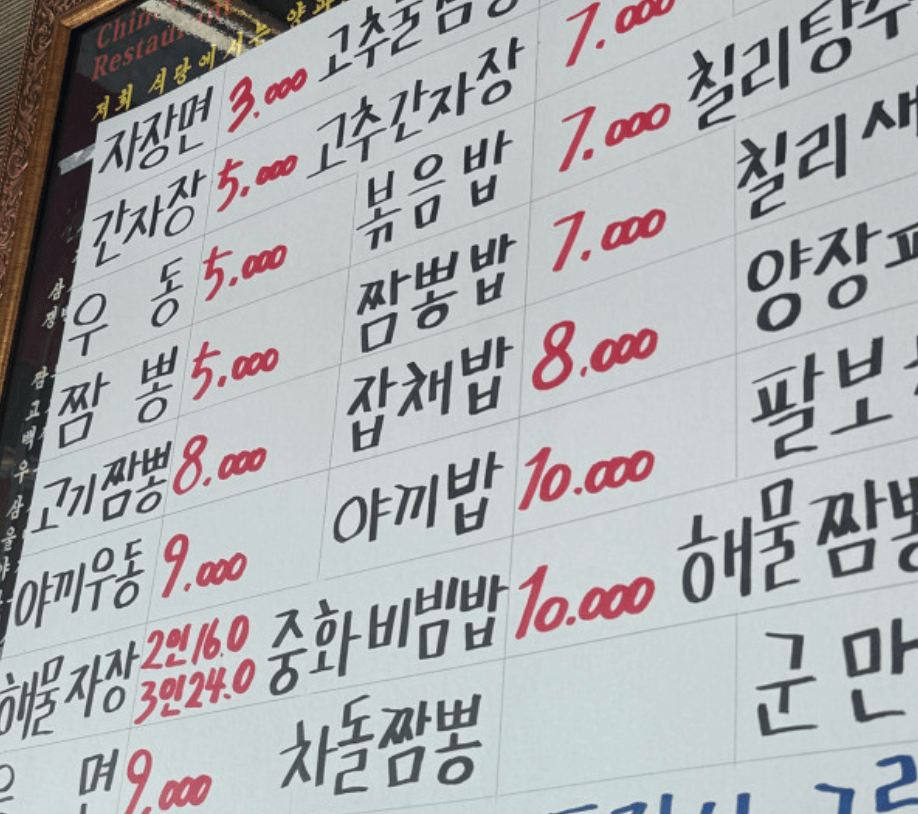 Restaurant
저희 식당에서는
자장면 3.000 고추굴짬
간자장 5.000 고추간자장 7.000
우동 5.000 볶음밥 7.000 칠리탕수
짬뽕 5.000 짬뽕밥 7.000 칠리새
고기짬뽕 8.000 잡채밥 8.000 양장피
야끼우동 9.000 야끼밥 10.000 팔보
해물자장 2인16.0 중화비빔밥 10.000 해물짬뽕
3인24.0
면 9.000 차돌짬뽕 군만